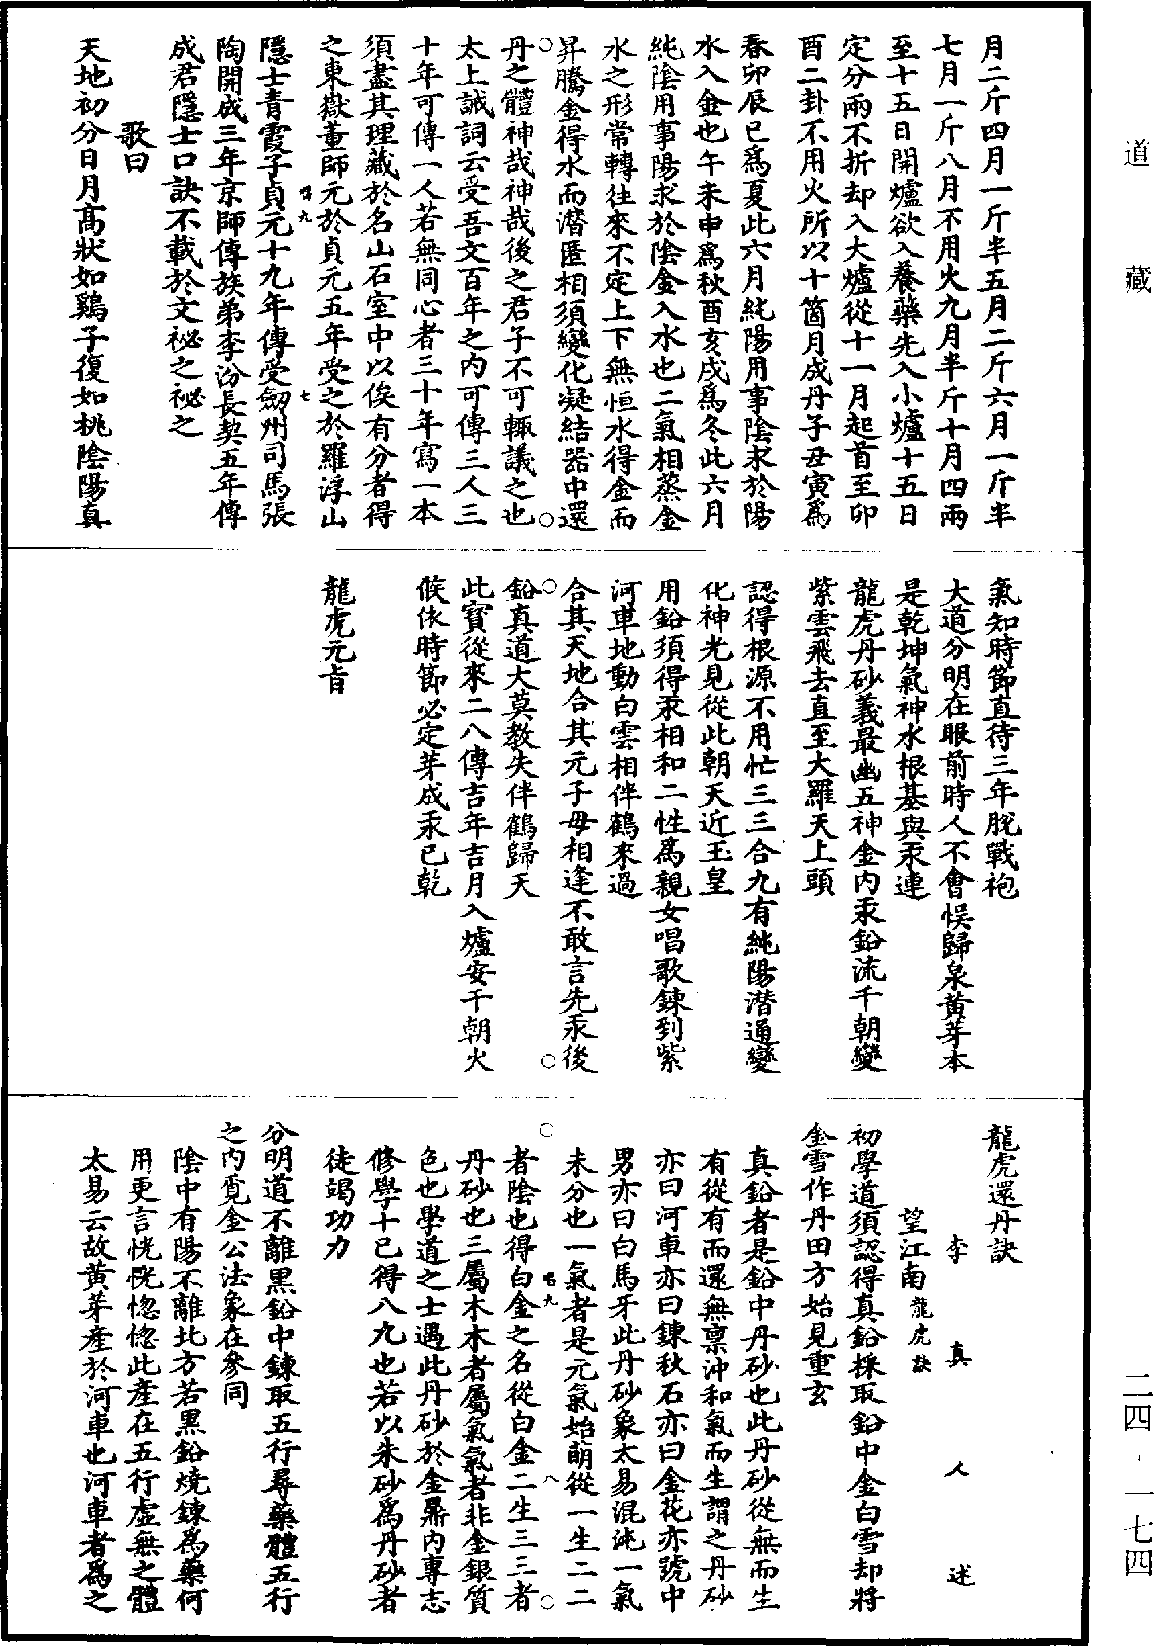 道藏
二四-一七四
月二斤四月一斤半五月二斤六月一斤半
七月一斤八月不用火九月半斤十月四兩
至十五日開爐欲入養藥先入小爐十五日
定分兩不折却入大爐從十一月起首至卯
酉二卦不用火所以十箇月成丹子丑寅爲
春卯辰巳爲夏此六月純陽用事陰求於陽
水入金也午未申爲秋酉亥戌爲冬此六月
純陰用事陽求於陰金入水也二氣相蒸金
水之形常轉往來不定上下無恒水得金而
昇騰金得水而潛匿相須變化凝結器中還
丹之體神哉神哉後之君子不可輒議之也
太上誡詞云受吾文百年之內可傳三人三
十年可傳一人若無同心者三十年寫一本
須盡其理藏於名山石室中以俟有分者得
之東嶽董師元於貞元五年受之於羅浮山
隱士青霞子貞元十九年傳受劒州司馬張
陶開成三年京師傳族弟李汾長契五年傳
成君隱士口訣不載於文祕之祕之
歌曰
天地初分日月高狀如鷄子復如桃陰陽真
氣知時節直待三年脫戰袍
大道分明在眼前時人不會悞歸泉黃芽本
是乾坤氣神水根基與汞連
龍虎丹砂義最幽五神金內汞鉛流千朝變
紫雲飛去直至大羅天上頭
認得根源不用忙三三合九有純陽潛通變
化神光見從此朝天近玉皇
用鉛須得汞相和二性爲親女唱歌鍊到紫
河車地動白雲相伴鶴來過
合其天地合其元子母相逢不敢言先汞後
鉛真道大莫教失伴鶴歸天
此寶從來二八傳吉年吉月入爐安千朝火
候依時節必定芽成汞已乾
龍虎元旨
龍虎還丹訣
李真人述
望江南龍虎訣
初學道須認得真鉛採取鉛中金白雪却將
金雪作丹田方始見重玄
真鉛者是鉛中丹砂也此丹砂從無而生
有從有而還無禀沖和氣而生謂之丹砂
亦曰河車亦曰鍊秋石亦曰金花亦號中
男亦曰白馬牙此丹砂象太易混沌一氣
未分也一氣者是元氣始萌從一生二二
者陰也得白金之名從白金二生三三者
丹砂也三屬木木者屬氣氣者非金銀質
色也學道之士遇此丹砂於金鼎內專志
修學十已得八九也若以朱砂爲丹砂者
徒竭功力
分明道不離黑鉛中鍊取五行尋藥體五行
之內覓金公法象在參同
陰中有陽不離北方若黑鉛燒鍊爲藥何
用更言恍恍惚惚此產在五行虛無之體
太易云故黃芽產於河車也河車者爲之